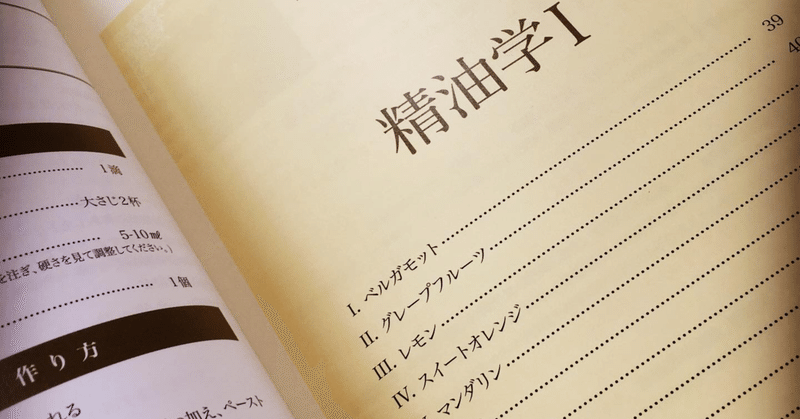 1滴
大さじ2杯
5-10㎖
を注ぎ、硬さを見て調整してください。）
1個
作り方
れる
加え、ペースト
精油学 I
I. ベルガモット 39
II. グレープフルーツ 40
III. レモン
IV. スイートオレンジ
マンダリン